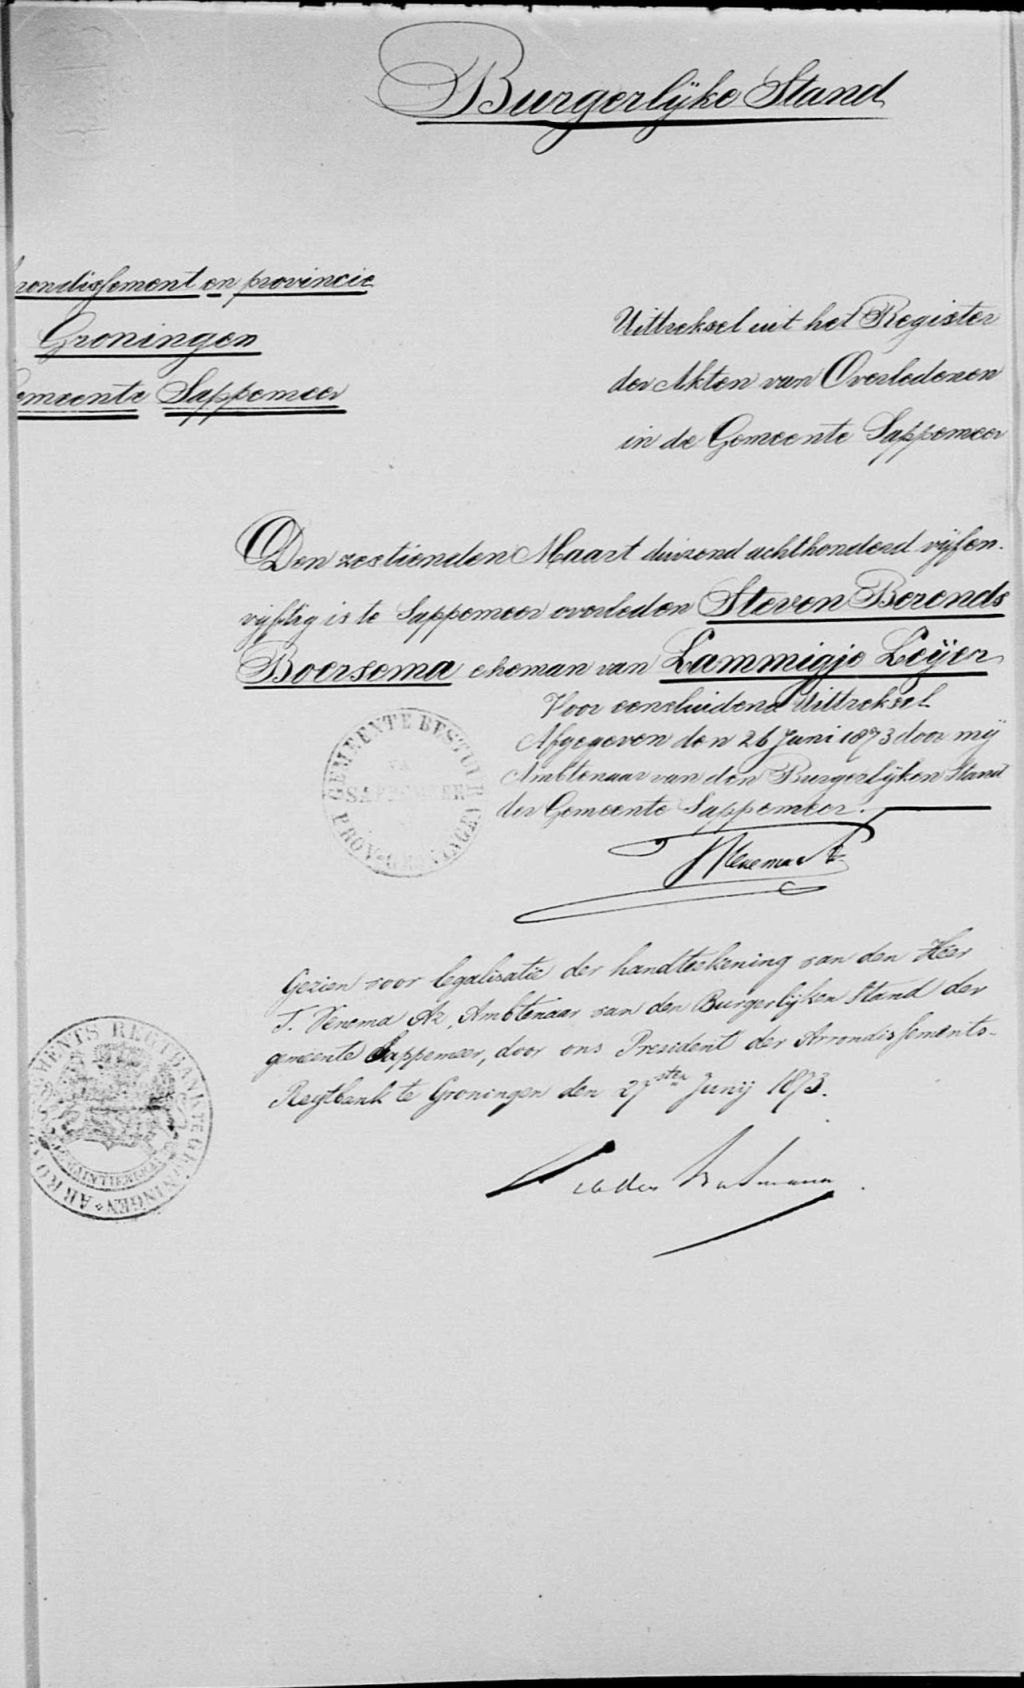 Burgerlijke Stand
rondissement en provincie
Groningen
emeente Sappemeer
Uittreksel uit het Register
der Akten van Overledenen
in de Gemeente Sappemeer
Den zestienden Maart duizend achthonderd vijfen-
vijftig is te Sappemeer overleden Steven Berends
Boersema eheman van Lammigje Leijer
Voor eensluidend Uittreksel
Afgegeven den 26 Juni 1873 door mij
Ambtenaar van den Burgerlijken Stand
der Gemeente Sappemeer.
GEMEENTE BESTUUR
SAPPEMEER
PROV. GRONINGEN
Gezien voor legalisatie der handteekening van den Heer
T. Venema Az, Ambtenaar van den Burgerlijken Stand der
gemeente Sappemeer, door ons President der Arrondissements-
Regtbank te Groningen den 27sten Junij 1873.
ARRONDISSEMENTS REGTBANK TE GRONINGEN